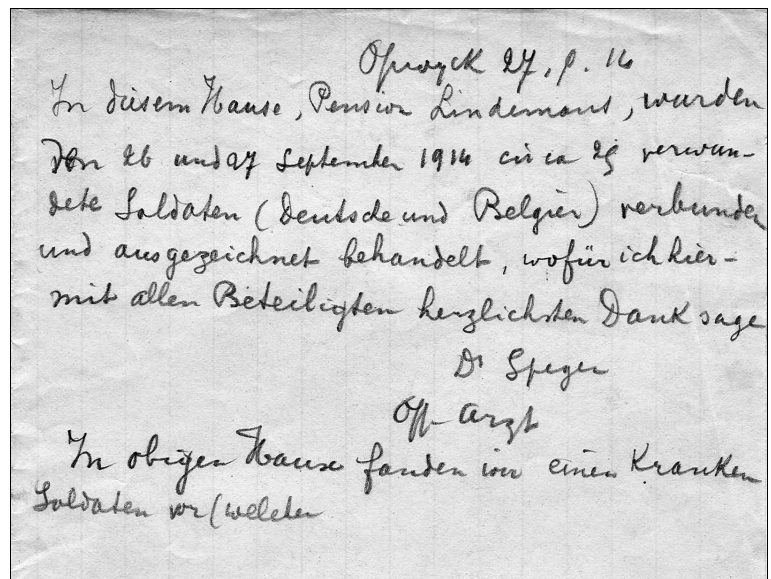 Opwyck 27. 9. 14
In diesem Hause, Pension Lindemans, wurden
den 26 und 27 September 1914 circa 25 verwun-
dete Soldaten (Deutsche und Belgier) verbunden
und ausgezeichnet behandelt, wofür ich hier-
mit allen Beteiligten herzlichsten Dank sage
Dr
Arzt
In obigen Hause fanden wir einen Kranken
Soldaten vor (welcher